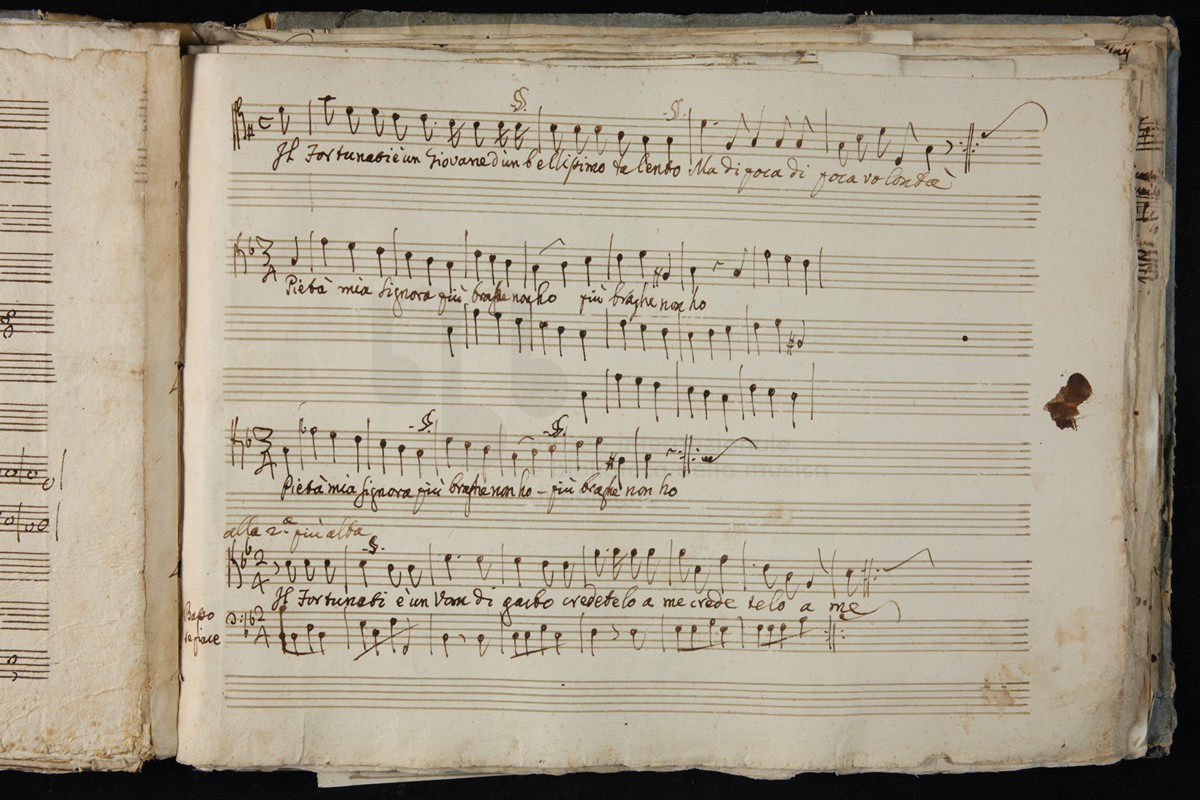 Il Fortunati è un Giovane d'un bellissimo talento Ma di poca di poca volontà
Pietà mia Signora più braghe non ho più braghe non ho
Pietà mia Signora più braghe non ho - più braghe non ho
alla 2.a più alta
Il Fortunati è un Vom di garbo credetelo a me crede telo a me
Basso
se piace